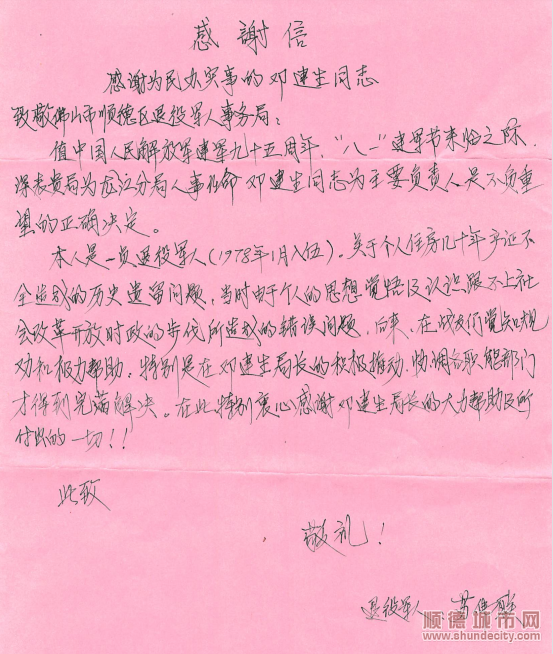 感謝信
感谢为民办实事的邓建生同志
致敬佛山市顺德区退役军人事务局：
值中国人民解放军建军九十五周年，“八一”建军节来临之际，
深表贵局为龙江分局人事任命邓建生同志为主要负责人是不负重
望的正确决定。
本人是一员退役军人（1978年1月入伍）。关于个人住房几十年
全造成的历史遗留问题，当时由于个人的思想觉悟及认识跟不上社
会改革开放时政的步伐所造成的错误问题，后来，在战友们
劝和极力帮助，特别是在邓建生局长的积极推动，协调各职能部门
才得到完满解决。在此特别衷心感谢邓建生局长的大力帮助及所
付出的一切！！
此致
敬礼！
退役军人
顺德城市网
www.shundecity.com